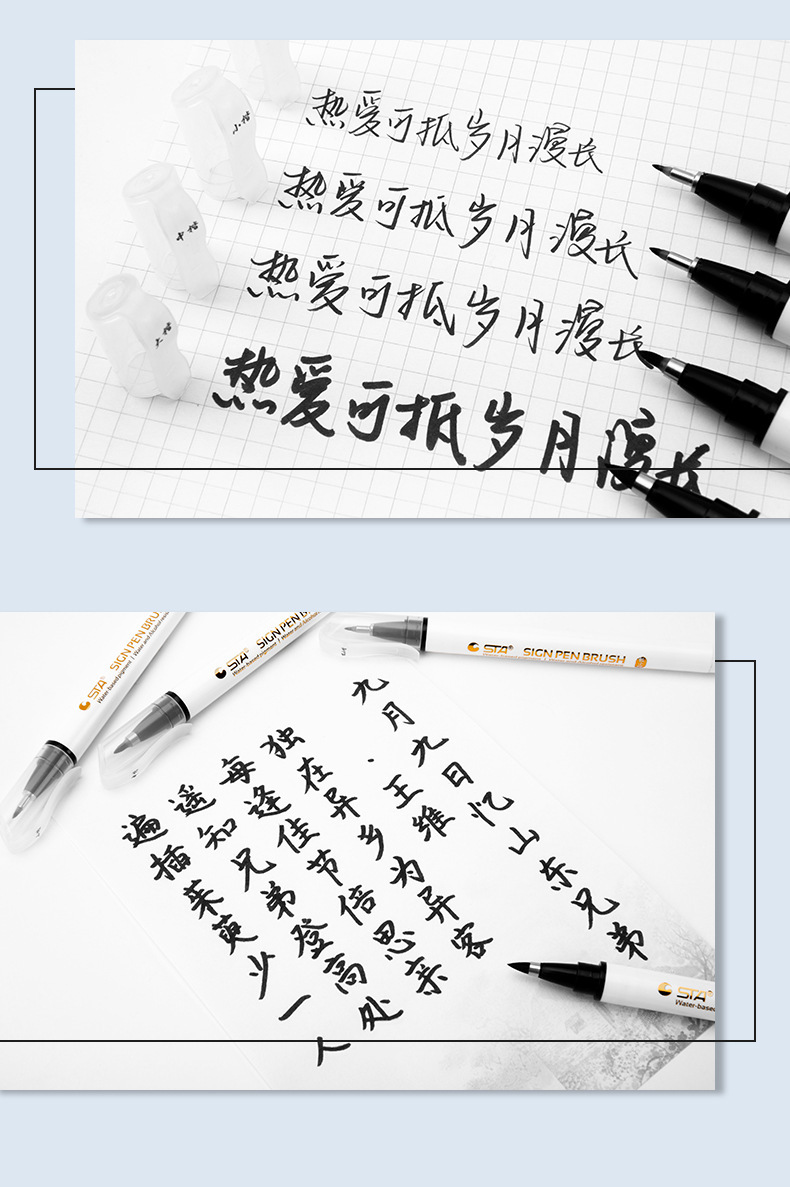 小楷
热爱可抵岁月漫长
中楷
热爱可抵岁月漫长
大楷
热爱可抵岁月漫长
热爱可抵岁月漫长
STA® SIGN PEN BRUSH
Water-based pigment / Water and Alcohol
STA® SIGN PEN
Water-based pigment / Water and Alcohol
STA® SIGN PEN BRUSH
九月九日忆山东兄弟
·王维
独在异乡为异客
每逢佳节倍思亲
遥知兄弟登高处
遍插茱萸少一人
STA®
Water-based